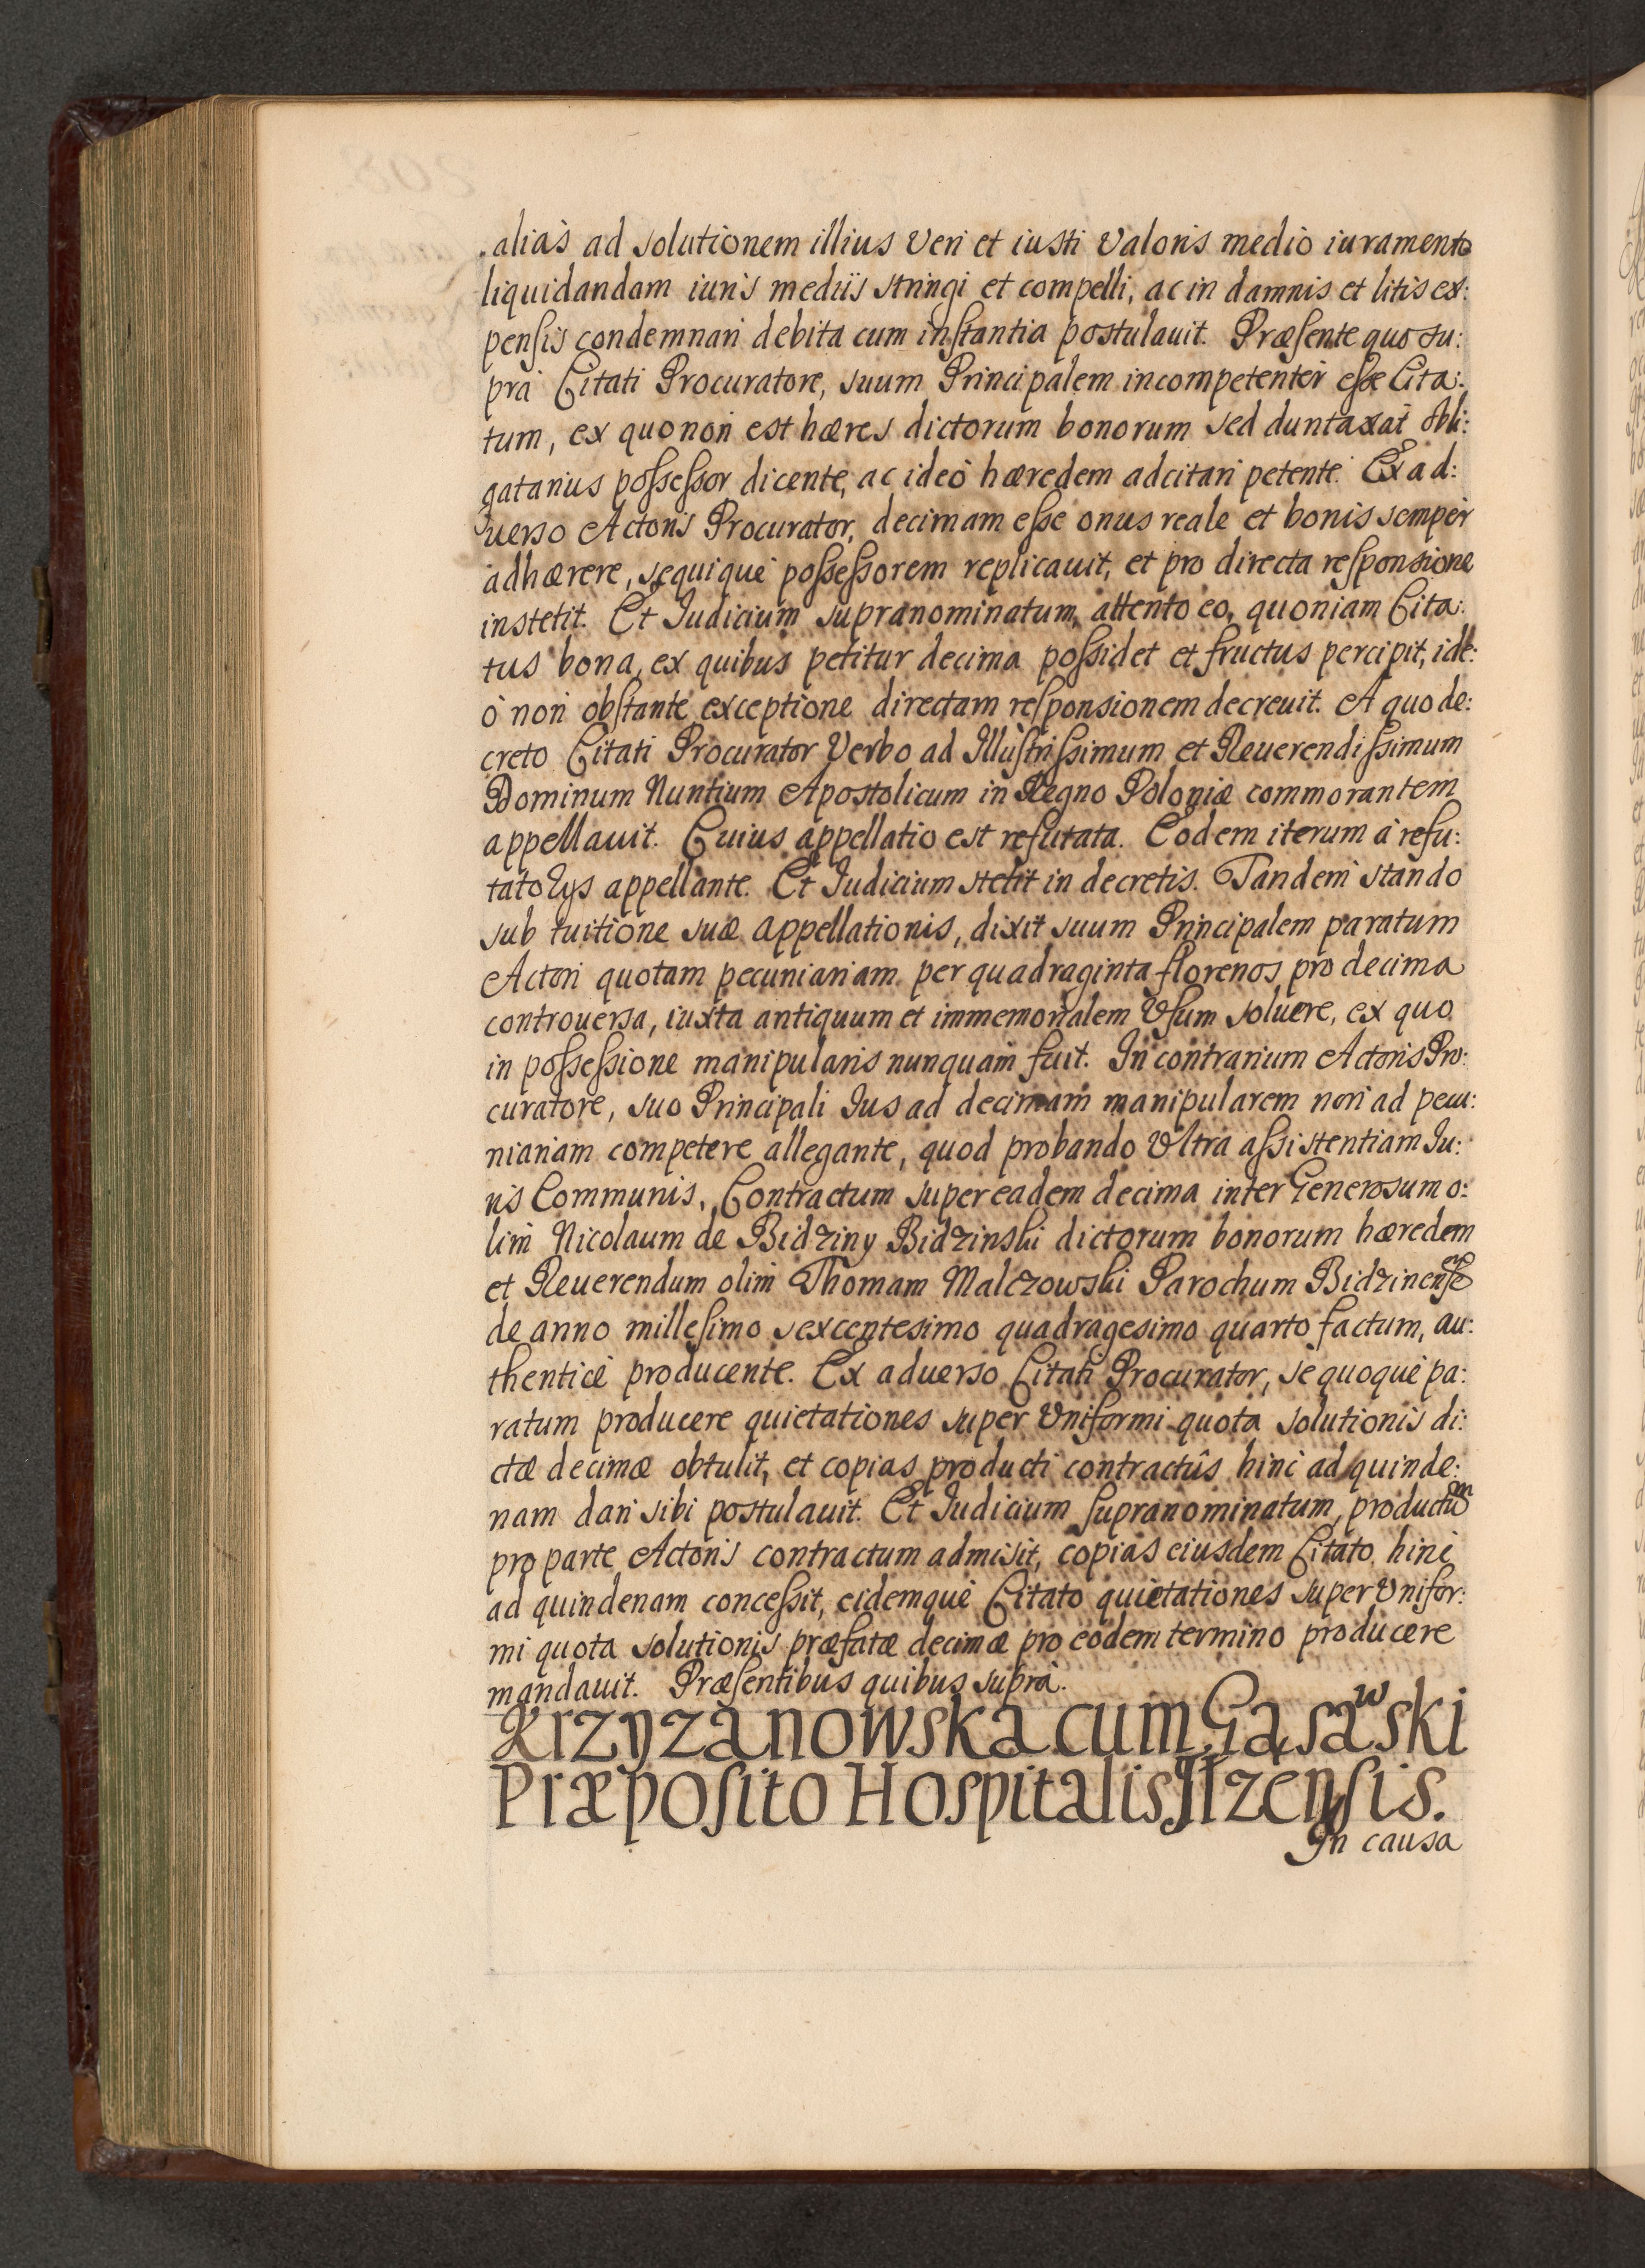 aliàs ad solutionem illius veri et iusti valoris medio iuramento
liquidandam iuris mediis stringi et compelli, ac in damnis et litis ex:
pensis condemnari debita cum instantia postulauit. Præsente quo su:
prà Citati Procuratore, suum Principalem incompetentèr esse Cita:
tum, ex quo non est hæres dictorum bonorum sed duntaxàt obli:
gatarius possessor dicente, ac ideò hæredem adcitari petente. Ex ad:
uerso Actoris Procurator, decimam esse onus reale et bonis sempèr
adhærere, sequiquè possessorem replicauit, et pro directa responsione
institit. Et Iudicium supranominatum, attento eo, quoniam Cita:
tus bona, ex quibus petitur decima possidet et fructus percipit, ide:
ò non obstante exceptione directam responsionem decreuit. A quo de:
creto Citati Procurator Verbo ad Illustrissimum et Reuerendissimum
Dominum Nuntium Apostolicum in Regno Poloniæ commorantem
appellauit. Cuius appellatio est refutata. Eodem iterum à refu:
tatorys appellante. Et Iudicium stetit in decretis. Tandem stando
sub tuitione suæ appellationis, dixit suum Principalem paratum
Actori quotam pecuniariam per quadraginta florenos pro decima
controuersa, iuxta antiquum et immemorialem Vsum soluere, ex quo
in possessione manipularis nunquam fuit. In contrarium Actoris Pro:
curatore, suo Principali Ius ad decimam manipularem non ad pecu:
niariam competere allegante, quod probando Vltra assistentiam Iu:
ris Communis, Contractum super eadem decima inter Generosum o:
lim Nicolaum de Bidziny Bidzinski dictorum bonorum hæredem
et Reuerendum olim Thomam Malczowski Parochum Bidzinensem
de anno millesimo sexcentesimo quadragesimo quarto factum, au:
thenticè producente. Ex aduerso Citati Procurator, se quoquè pa:
ratum producere quietationes super Vniformi quota solutionis di:
ctæ decimæ obtulit, et copias producti contractûs hinc ad quinde:
nam dari sibi postulauit. Et Iudicium supranominatum, productum
pro parte Actoris contractum admisit, copias eiusdem Citato hinc
ad quindenam concessit, eidemquè Citato quietationes super Vnifor:
mi quota solutionis præfatæ decimæ pro eodem termino producere
mandauit. Præsentibus quibus suprà.
Krzyzanowska cum Gąsawski
Præposito Hospitalis Ilzensis.
In causa